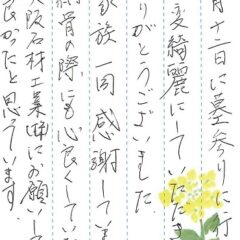 月十二日に墓参りに行
変綺麗にしていただき
りがとうございました。
家族一同感謝していま
納骨の際にも心良くしてい
大阪石材工業㈱にお願いして
良かったと思っています。